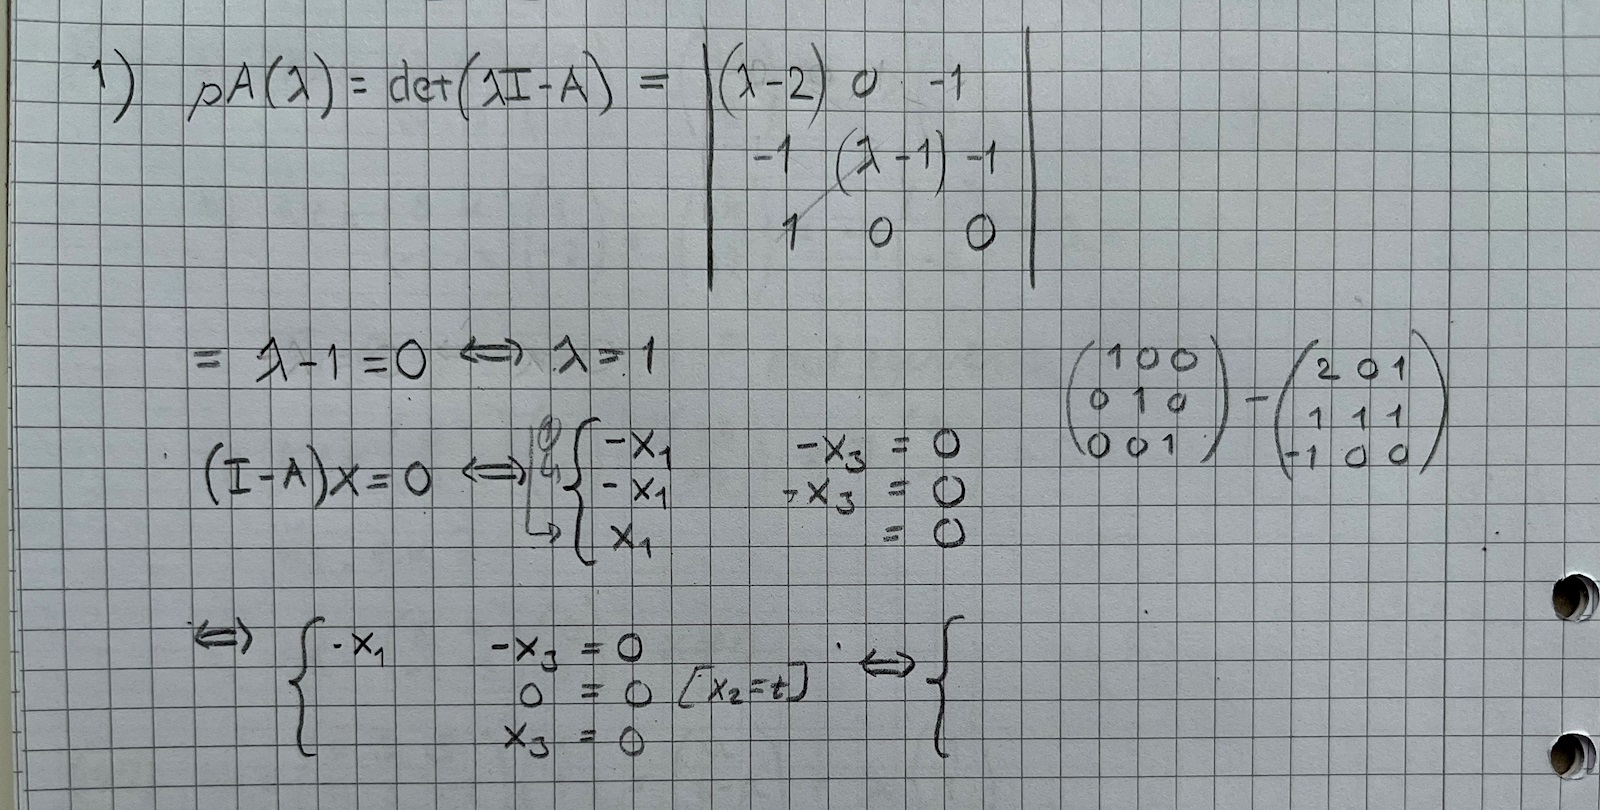 1) pA(λ) = det(λI-A) = | (λ-2) 0 -1 |
| -1 (λ-1) -1 |
| 1 0 0 |
= λ-1 = 0 ⟺ λ = 1
( 1 0 0 ) - ( 2 0 1 )
( 0 1 0 ) ( 1 1 1 )
( 0 0 1 ) ( -1 0 0 )
(I-A)x = 0 ⟺ { -x₁ -x₃ = 0
-x₁ -x₃ = 0
x₁ = 0
⟺ { -x₁ -x₃ = 0 ⟺ {
0 = 0 [x₂=t]
x₃ = 0